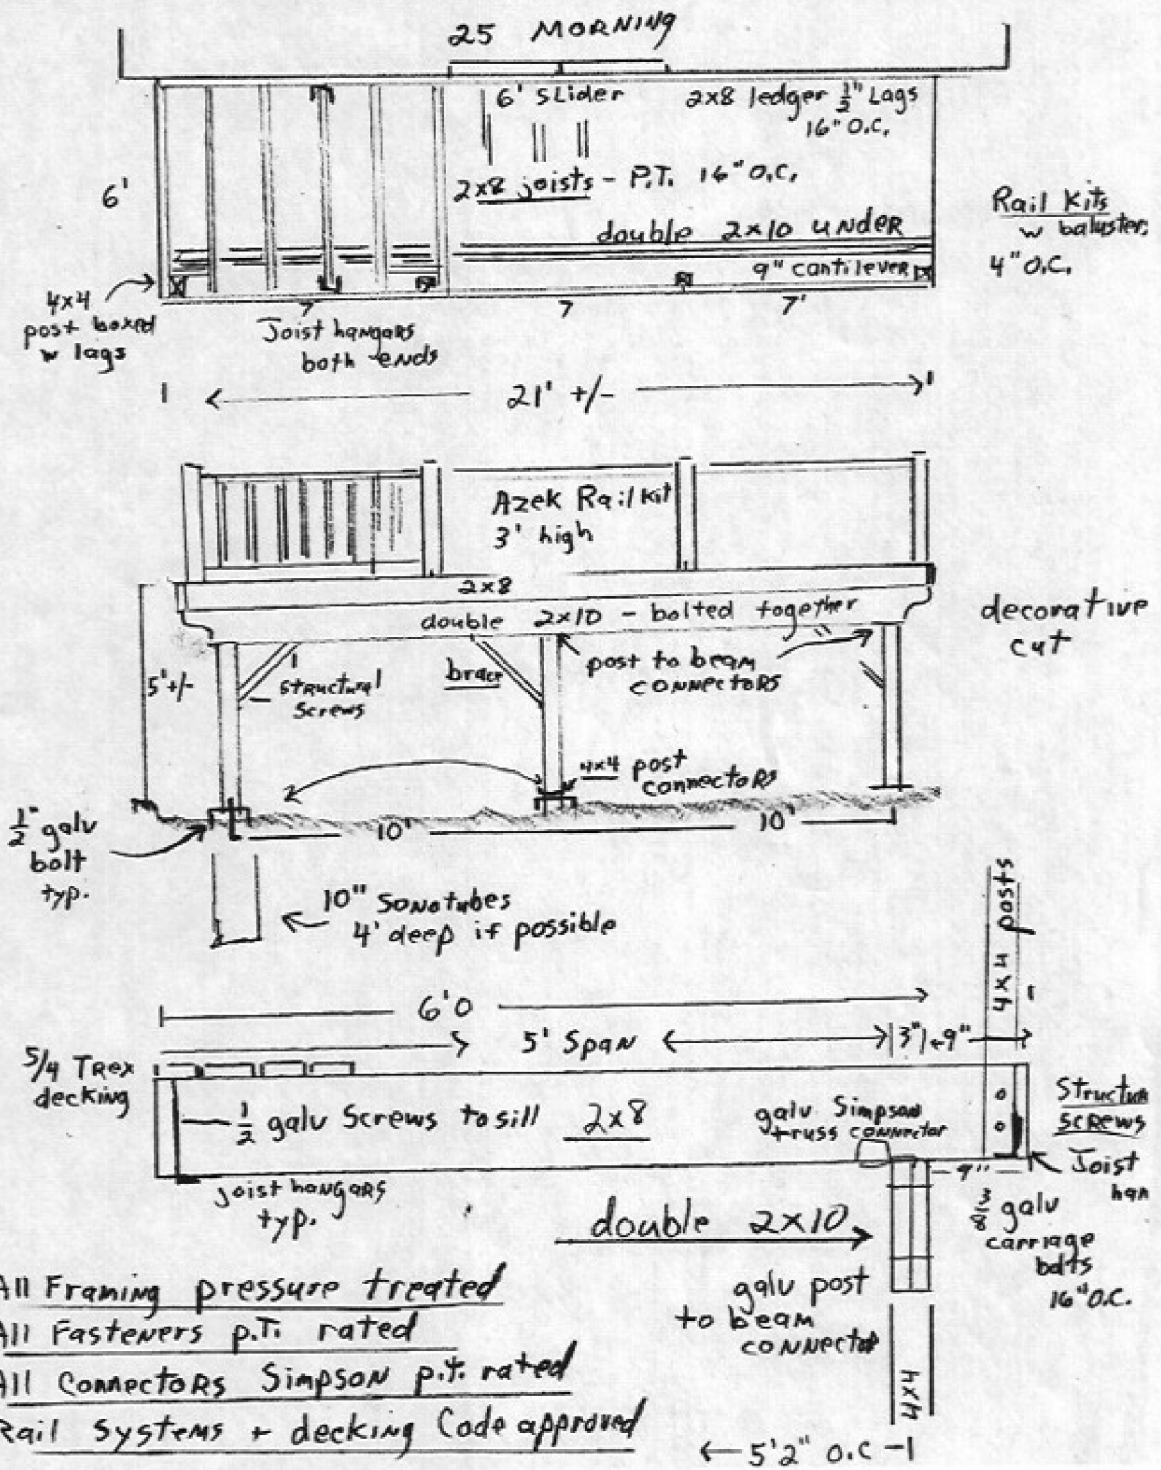 25 MORNING
6' SLIDER
2x8 ledger 1/2" Lags
16" O.C.
6'
2x8 joists - P.T. 16" O.C.
double 2x10 UNDER
9" cantilever
Rail Kits
w baluster
4" O.C.
4x4
post boxed
w lags
7
7
7'
Joist hangars
both ends
21' +/-
Azek Rail kit
3' high
2x8
double 2x10 - bolted together
decorative
cut
5' +/-
structural
screws
brace
post to beam
connectors
"
4x4 post
connectors
1/2" galv
bolt
typ.
10'
10'
10" Sonotubes
4' deep if possible
4x4 posts
6'0
5' Span
3"
9"
5/4 Trex
decking
1/2 galv Screws to sill
2x8
galv Simpson
truss connector
Screws
joist hangars
typ.
9"
Joist
double 2x10
3/8 galv
carriage
bolts
16" O.C.
galv post
to beam
connector
All Framing pressure treated
All Fasteners p.T. rated
All Connectors Simpson p.t. rated
Rail Systems + decking Code approved
4x4
5'2" O.C